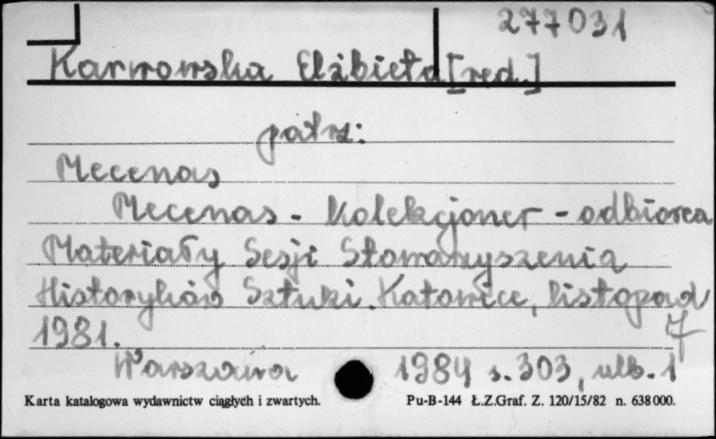 277031
Karwowska Elżbieta [red.]
patrz:
Mecenas
Mecenas - Kolekcjoner - odbiorca
Materiały Sesji Stowarzyszenia
Historyków Sztuki. Katowice, listopad
1981.
Warszawa 1984 s. 303, nlb. 1
Karta katalogowa wydawnictw ciągłych i zwartych. Pu-B-144 Ł.Z.Graf. Z. 120/15/82 n. 638000.